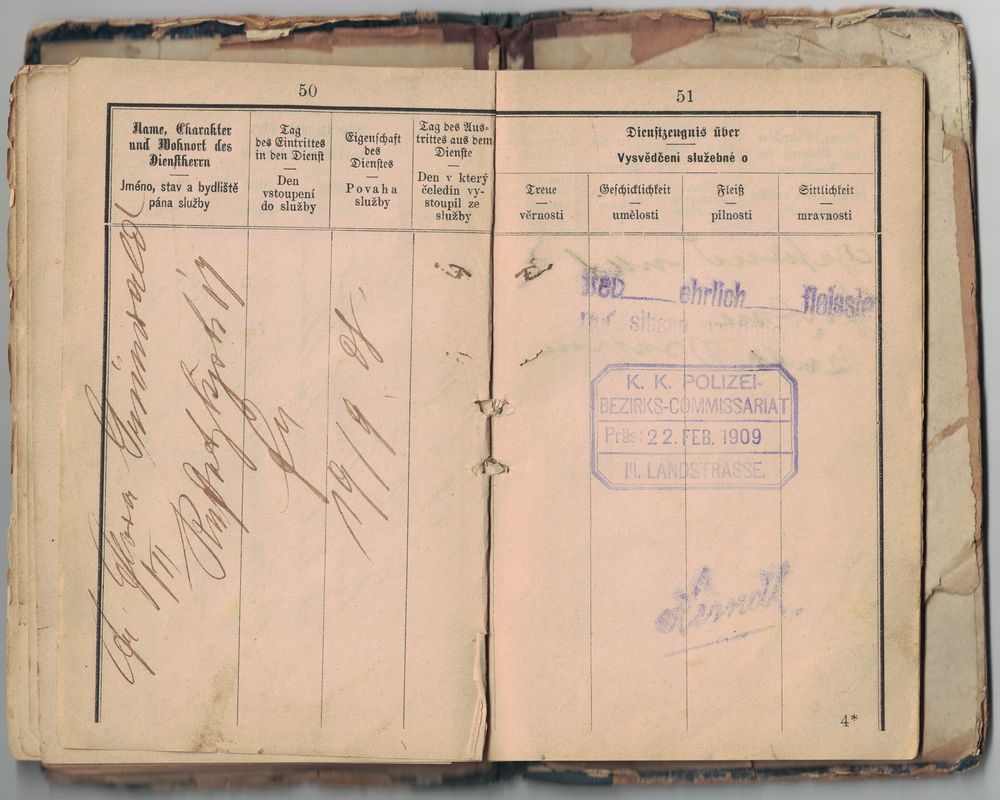 50
Name, Charakter
und Wohnort des
Dienstherrn
Jméno, stav a bydliště
pána služby
Tag
des Eintrittes
in den Dienst
Den
vstoupení
do služby
Eigenschaft
des
Dienstes
Povaha
služby
Tag des Aus-
trittes aus dem
Dienste
Den v který
čeledín vy-
stoupil ze
služby
19/9 08
51
Dienstzeugnis über
Vysvědčení služebné o
Treue
věrnosti
Geschicklichkeit
umělosti
Fleiß
pilnosti
Sittlichkeit
mravnosti
ehrlich
K. K. POLIZEI-
BEZIRKS-COMMISSARIAT
Präs: 22. FEB. 1909
III. LANDSTRASSE.
4*